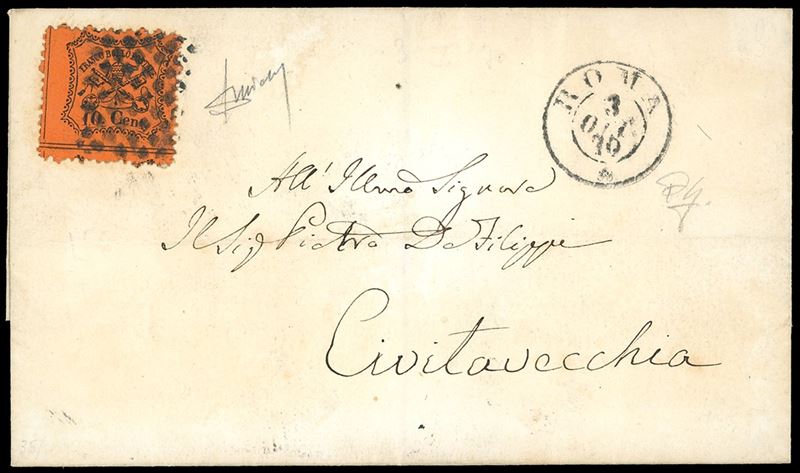 FRANCO BOLLO
10 Cent
ROMA
3
70
All' Illmo Signore
Il Sig Pietro De Filippi
Civitavecchia